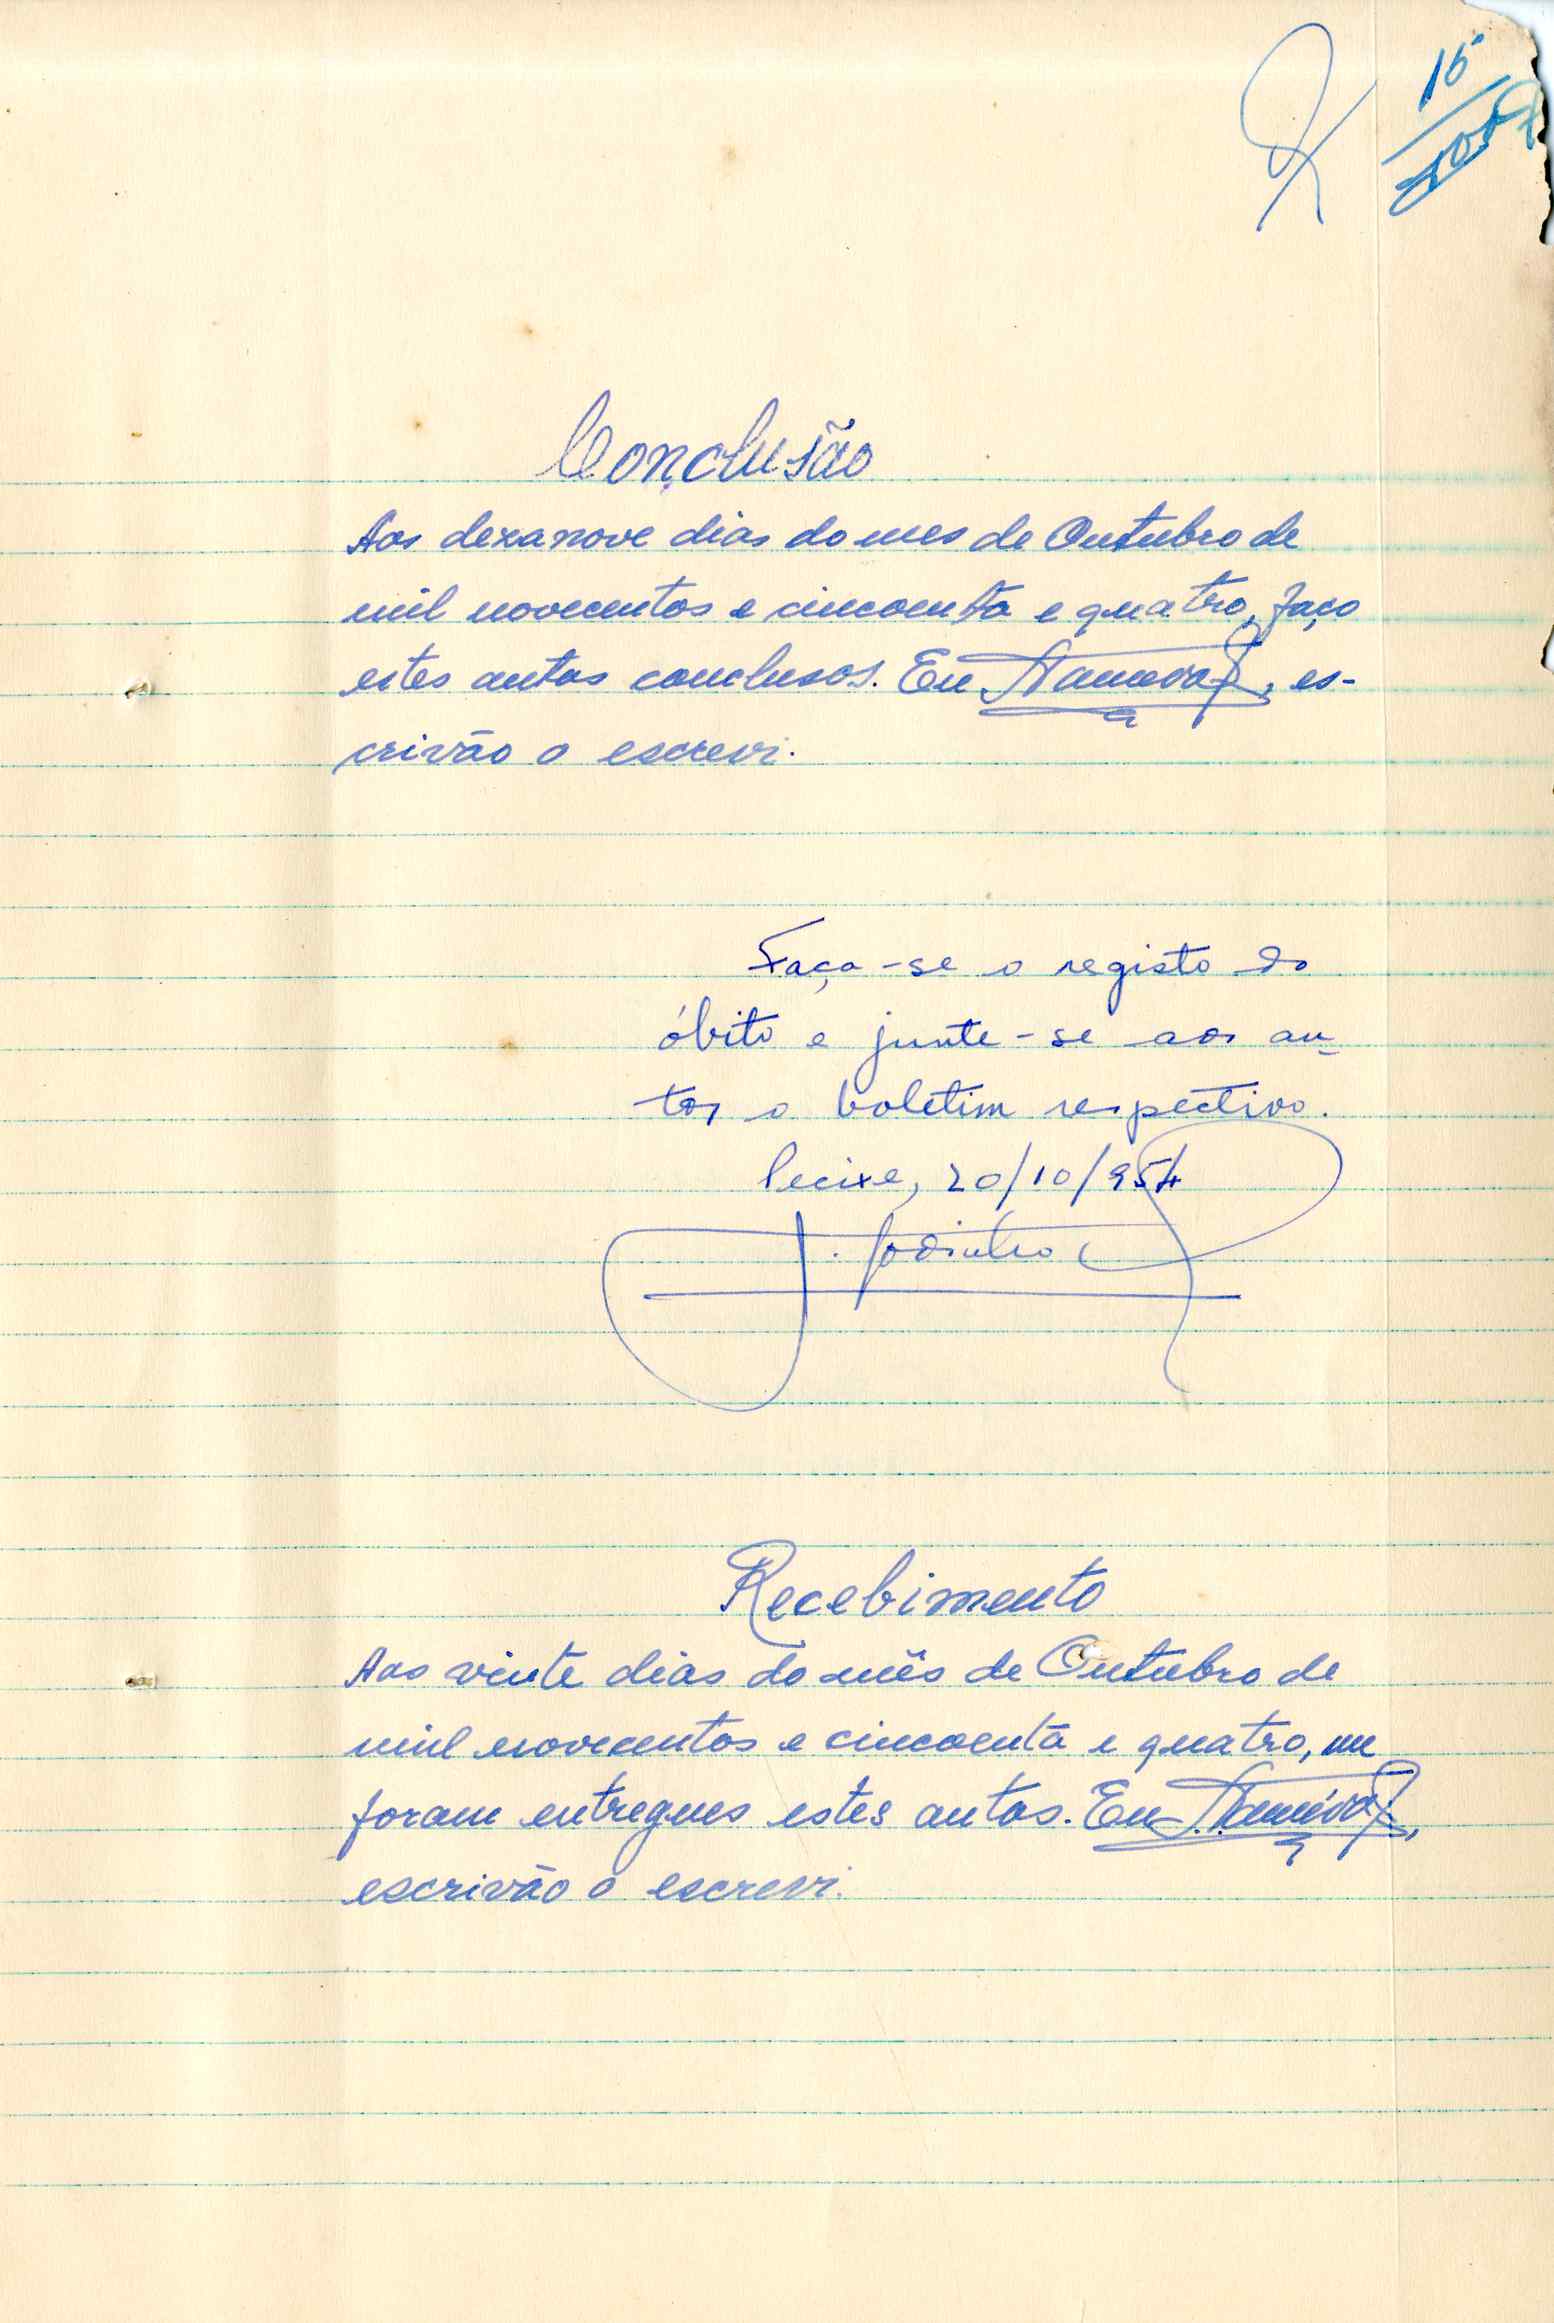 15
Conclusão
Aos dezanove dias do mes de Outubro de
mil novecentos e cincoenta e quatro, faço
estes autos conclusos. Eu , es-
crivão o escrevi.
Faça-se o registo do
óbito e junte-se aos au-
tos o boletim respectivo.
Pecixe, 20/10/954
Recebimento
Aos vinte dias do mês de Outubro de
mil novecentos e cincoenta e quatro, me
foram entregues estes autos. Eu ,
escrivão o escrevi.